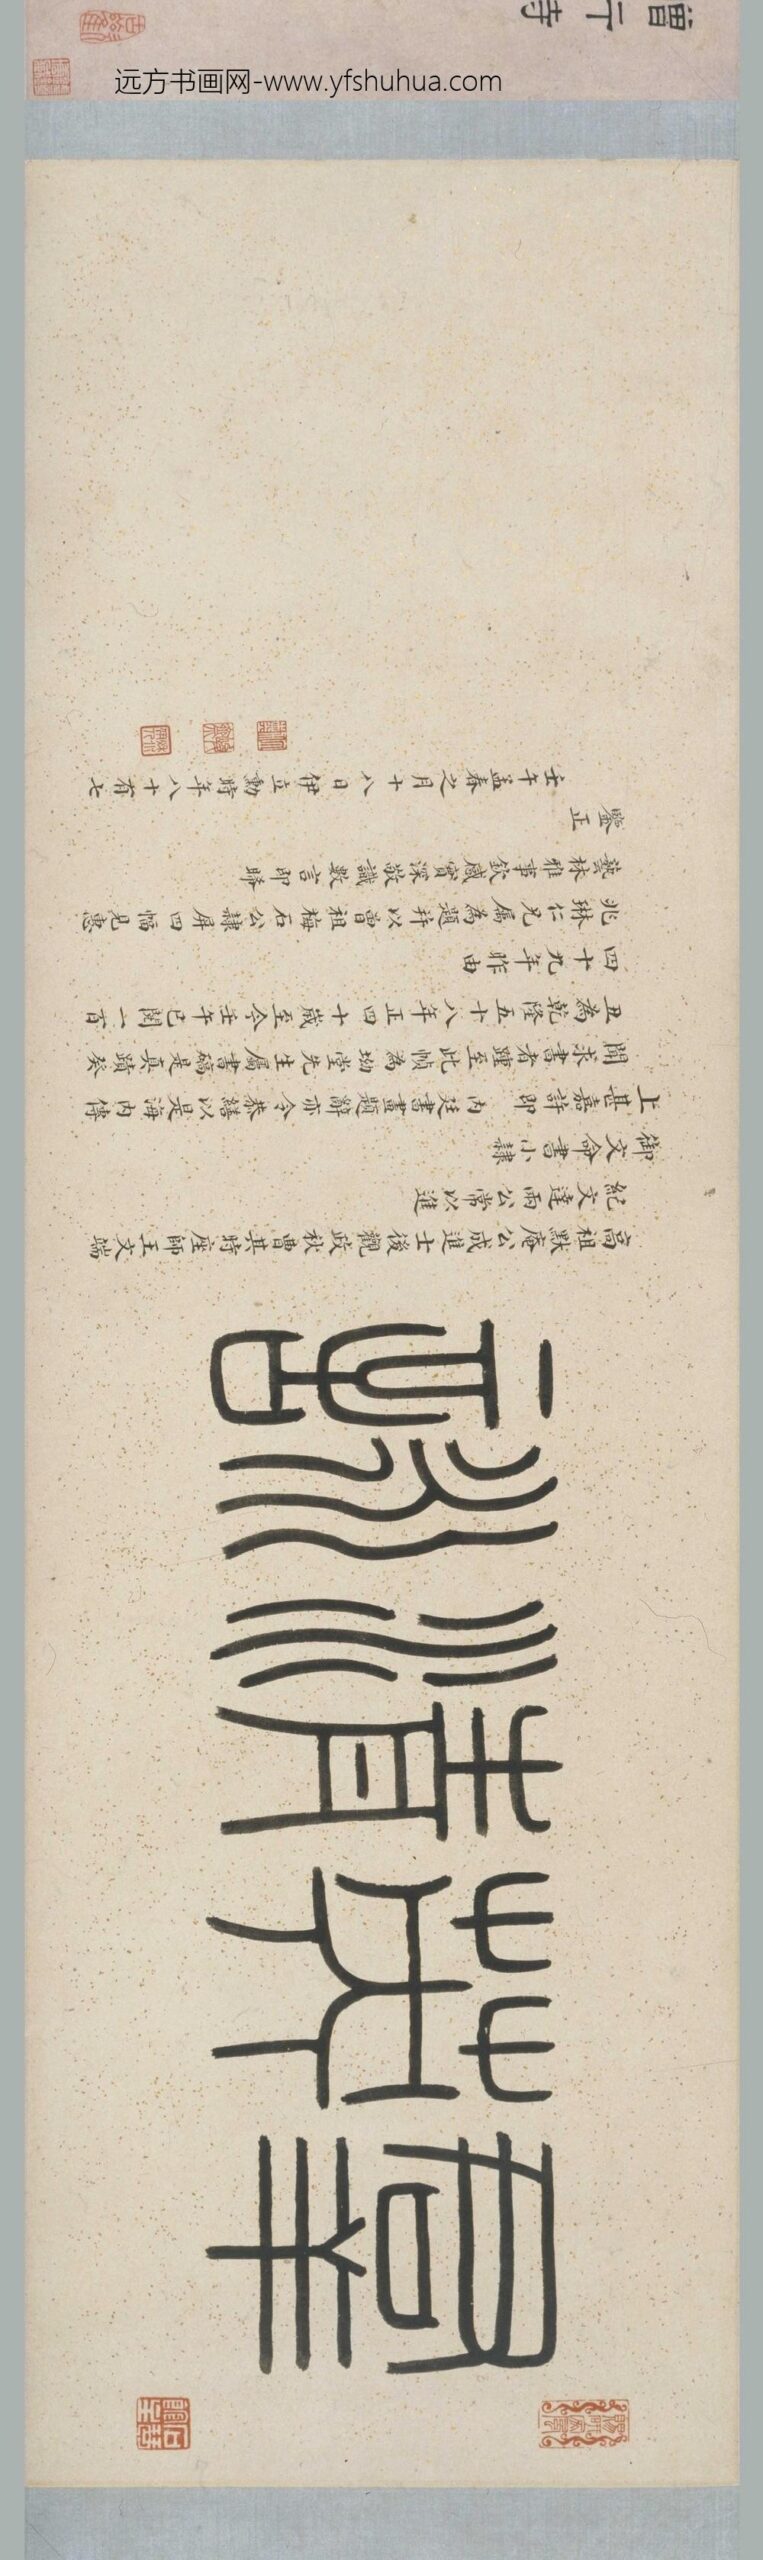 远方书画网-www.yfshuhua.com
高祖默庵公成進士後觀政秋曹其時座師王文端
紀文達兩公常以進
御文命書小隸
上甚嘉許即 內廷書畫題辭亦令恭繕以是海內傳
聞求書者踵至此幀為坳堂先生属書確是真蹟癸
丑為乾隆五十八年正四十歲至今壬午已閱一百
四十九年昨由
兆琳仁兄属為題并以曾祖梅石公隸屏四幅見惠
藝林雅事欽感實深敬識數言即睎
鑒正
壬午孟春之月十八日伊立勳時年八十有七